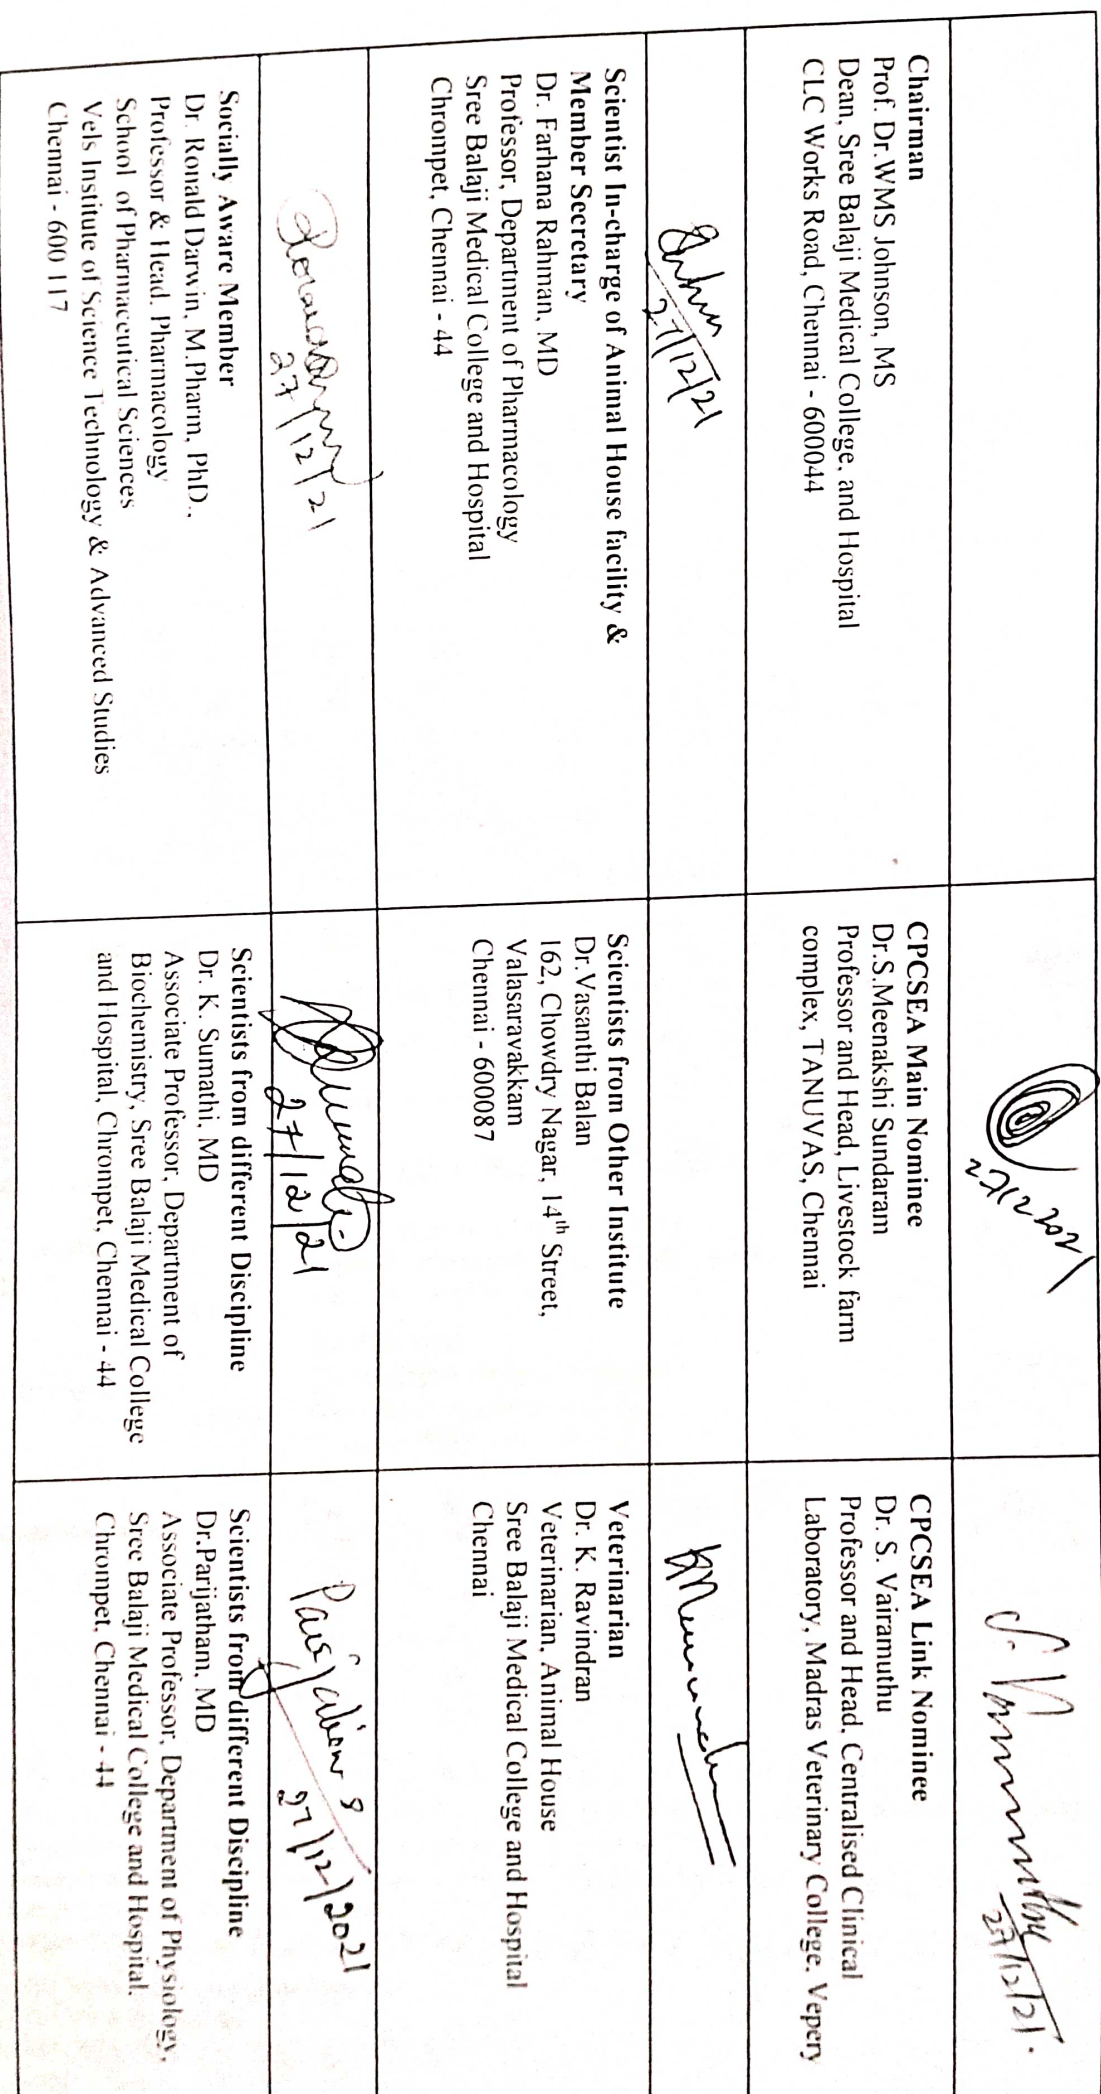 27/12/2021
S. Vairamuthu
27/12/21.
Chairman
Prof. Dr.WMS Johnson, MS
Dean, Sree Balaji Medical College, and Hospital
CLC Works Road, Chennai - 600044
CPCSEA Main Nominee
Dr.S.Meenakshi Sundaram
Professor and Head, Livestock farm
complex, TANUVAS, Chennai
CPCSEA Link Nominee
Dr. S. Vairamuthu
Professor and Head, Centralised Clinical
Laboratory, Madras Veterinary College, Vepery
27/12/21
Scientist In-charge of Animal House facility &
Member Secretary
Dr. Farhana Rahman, MD
Professor, Department of Pharmacology
Sree Balaji Medical College and Hospital
Chrompet, Chennai - 44
Scientists from Other Institute
Dr.Vasanthi Balan
162, Chowdry Nagar, 14th Street,
Valasaravakkam
Chennai - 600087
Veterinarian
Dr. K. Ravindran
Veterinarian, Animal House
Sree Balaji Medical College and Hospital
Chennai
27/12/21
27/12/21
Parijatham S
27/12/2021
Socially Aware Member
Dr. Ronald Darwin, M.Pharm, PhD.,
Professor & Head, Pharmacology
School of Pharmaceutical Sciences
Vels Institute of Science Technology & Advanced Studies
Chennai - 600 117
Scientists from different Discipline
Dr. K. Sumathi, MD
Associate Professor, Department of
Biochemistry, Sree Balaji Medical College
and Hospital, Chrompet, Chennai - 44
Scientists from different Discipline
Dr.Parijatham, MD
Associate Professor, Department of Physiology,
Sree Balaji Medical College and Hospital.
Chrompet, Chennai - 44